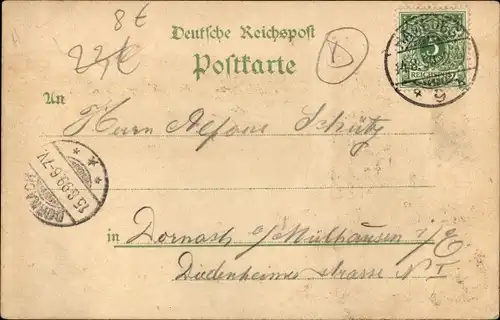 8 €
22,€
Deutsche Reichspost
Postkarte
1
5
REICHSPOST
* 9
An
Herrn Alfons Schütz
DORNACH
15.8.99.6-7V.
in Dornach a/Mülhausen i/E
Didenheimer strasse N° 1